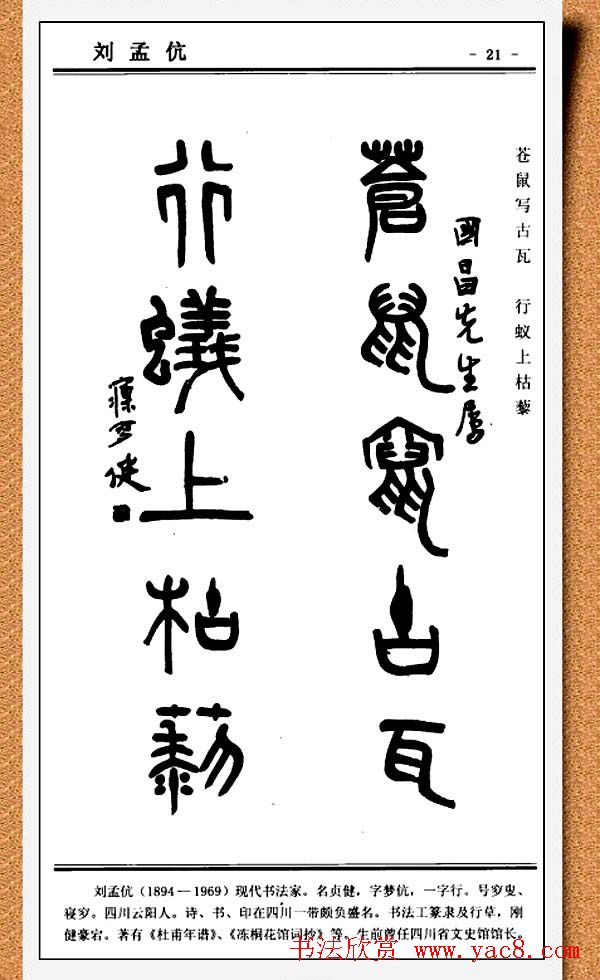 刘孟伉
- 21 -
苍鼠写古瓦 行蚁上枯藜
國昌先生屬
蒼鼠竄古瓦
行蟻上枯藜
刘孟伉（1894—1969）现代书法家。名贞健，字梦伉，一字行。号穸叟、
寝穸。四川云阳人。诗、书、印在四川一带颇负盛名。书法工篆隶及行草，刚
健豪宕。著有《杜甫年谱》、《冻桐花馆词抄》等，生前曾任四川省文史馆馆长。
书法欣赏 www.yac8.com